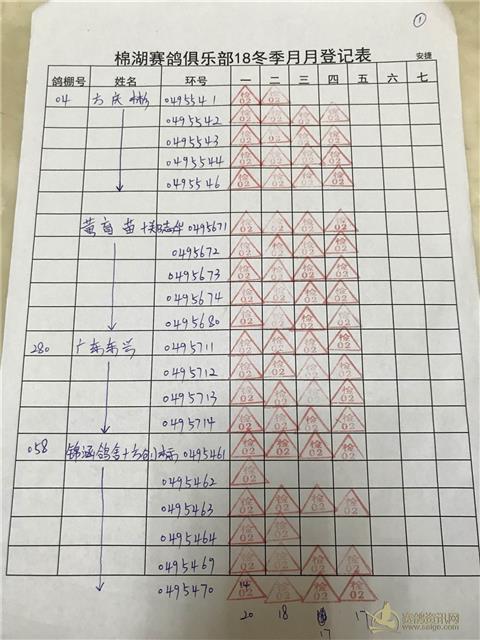 ①
棉湖赛鸽俱乐部18冬季月月登记表 安捷
鸽棚号 姓名 环号 一 二 三 四 五 六 七
04 0495541 检02 检02
0495542 检02 检02 检02 检02
0495543 检02 检02 检02 检02
0495544 检02 检02 检02 检02
0495546 检02 检02 检02 检02
0495671 检02 检02 检02 检02
0495672 检02 检02 检02 检02
0495673 检02 检02 检02 检02
0495674 检02 检02 检02 检02
0495680 检02 检02 检02 检02
280 广东东兴 0495711 检02 检02 检02 检02
0495712 检02 检02 检02 检02
0495713 检02 检02 检02 检02
0495714 检02 检02 检02 检02
058 锦涵鸽舍+ 0495461 检02 检02 检02 检02
0495462 检02
0495463 检02 检02 检02 检02
0495464 检02 检02
0495469 检02 检02 检02 检02
0495470 02 检02 检02 检02
20 18 17
17
赛鸽资讯网
www.saige.com